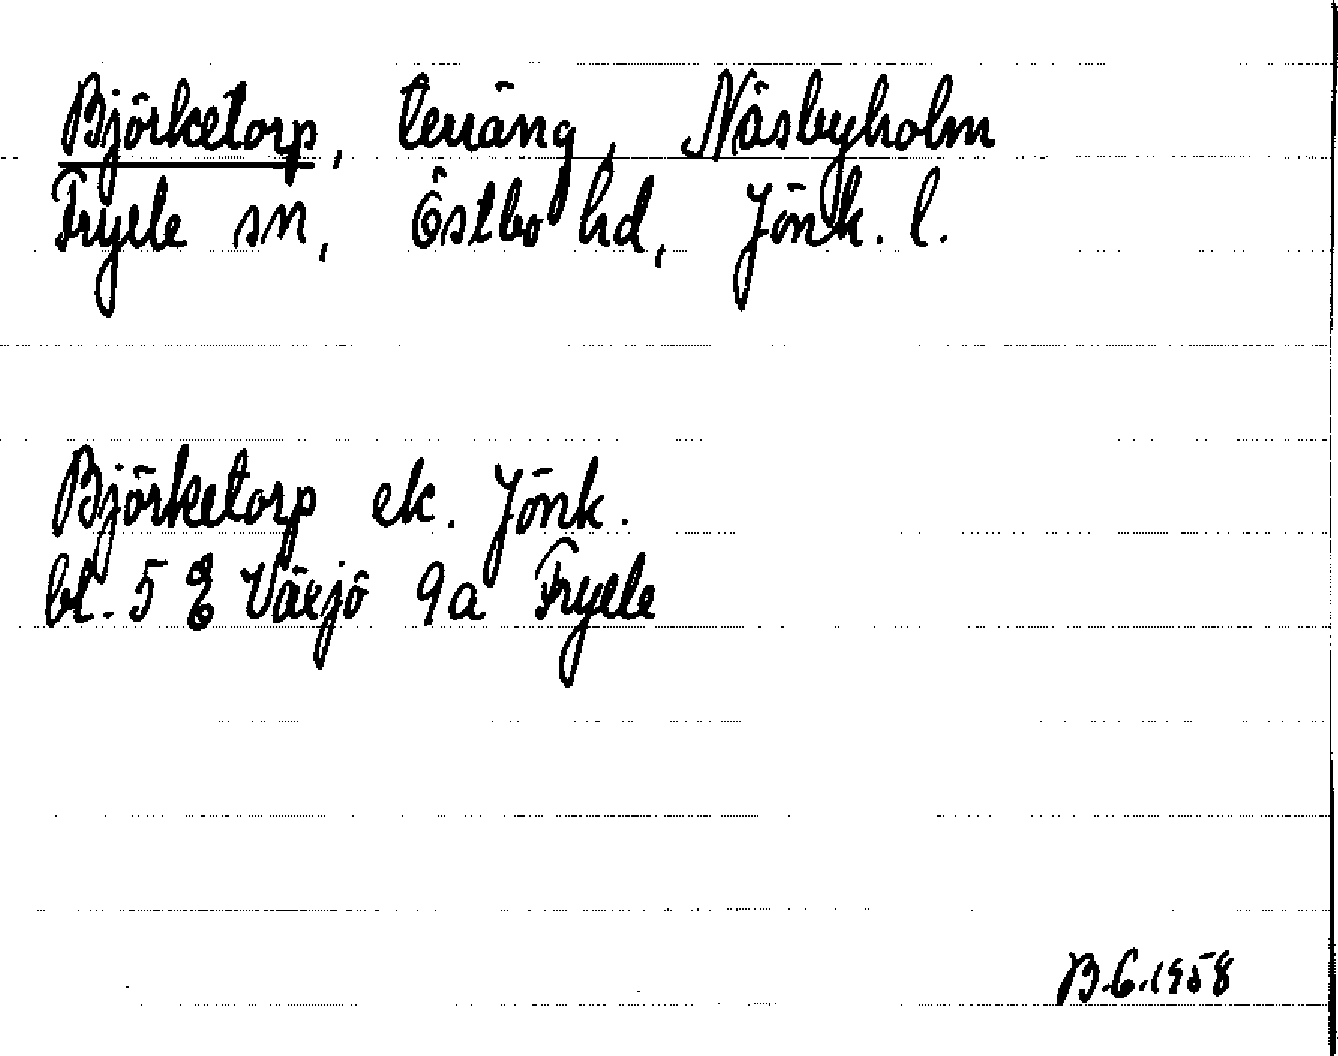 Björketorp, terräng, Näsbyholm
Fryele sn, Östbo hd, Jönk. l.
Björketorp ek. Jönk.
bl. 5 E Växjö 9a Fryele
B.G.1958